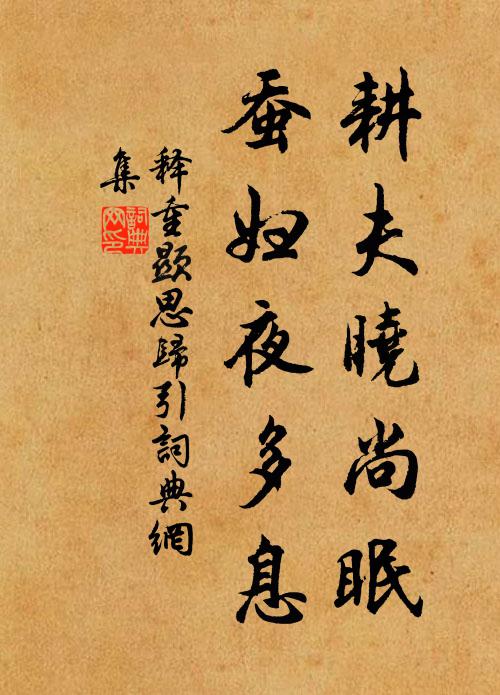 耕夫曉尚眠
蚕妇夜多息
释重顯思歸引詞典網
集
詞典
网印